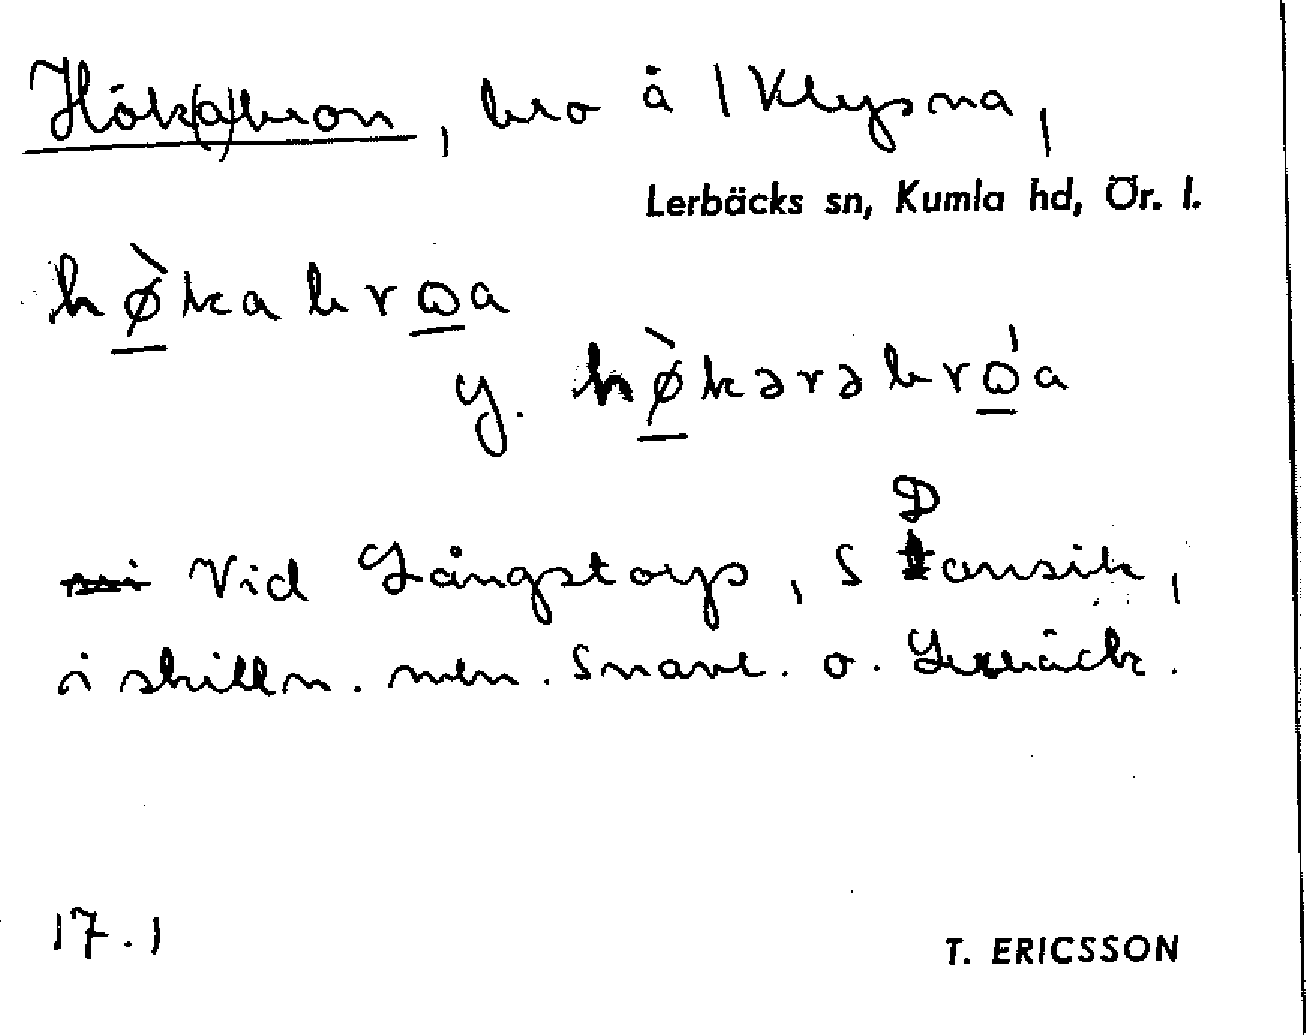 Hök(a)bron, bro å | Klysna,
Lerbäcks sn, Kumla hd, Ör. l.
hø̱̀kabrꞷ̱a
y. hø̱̀kərəbrꞷ̱́a
Vid Långstorp, S Dansik,
i skilln. mln. Snavl. o. Lerbäck.
17.1
T. ERICSSON